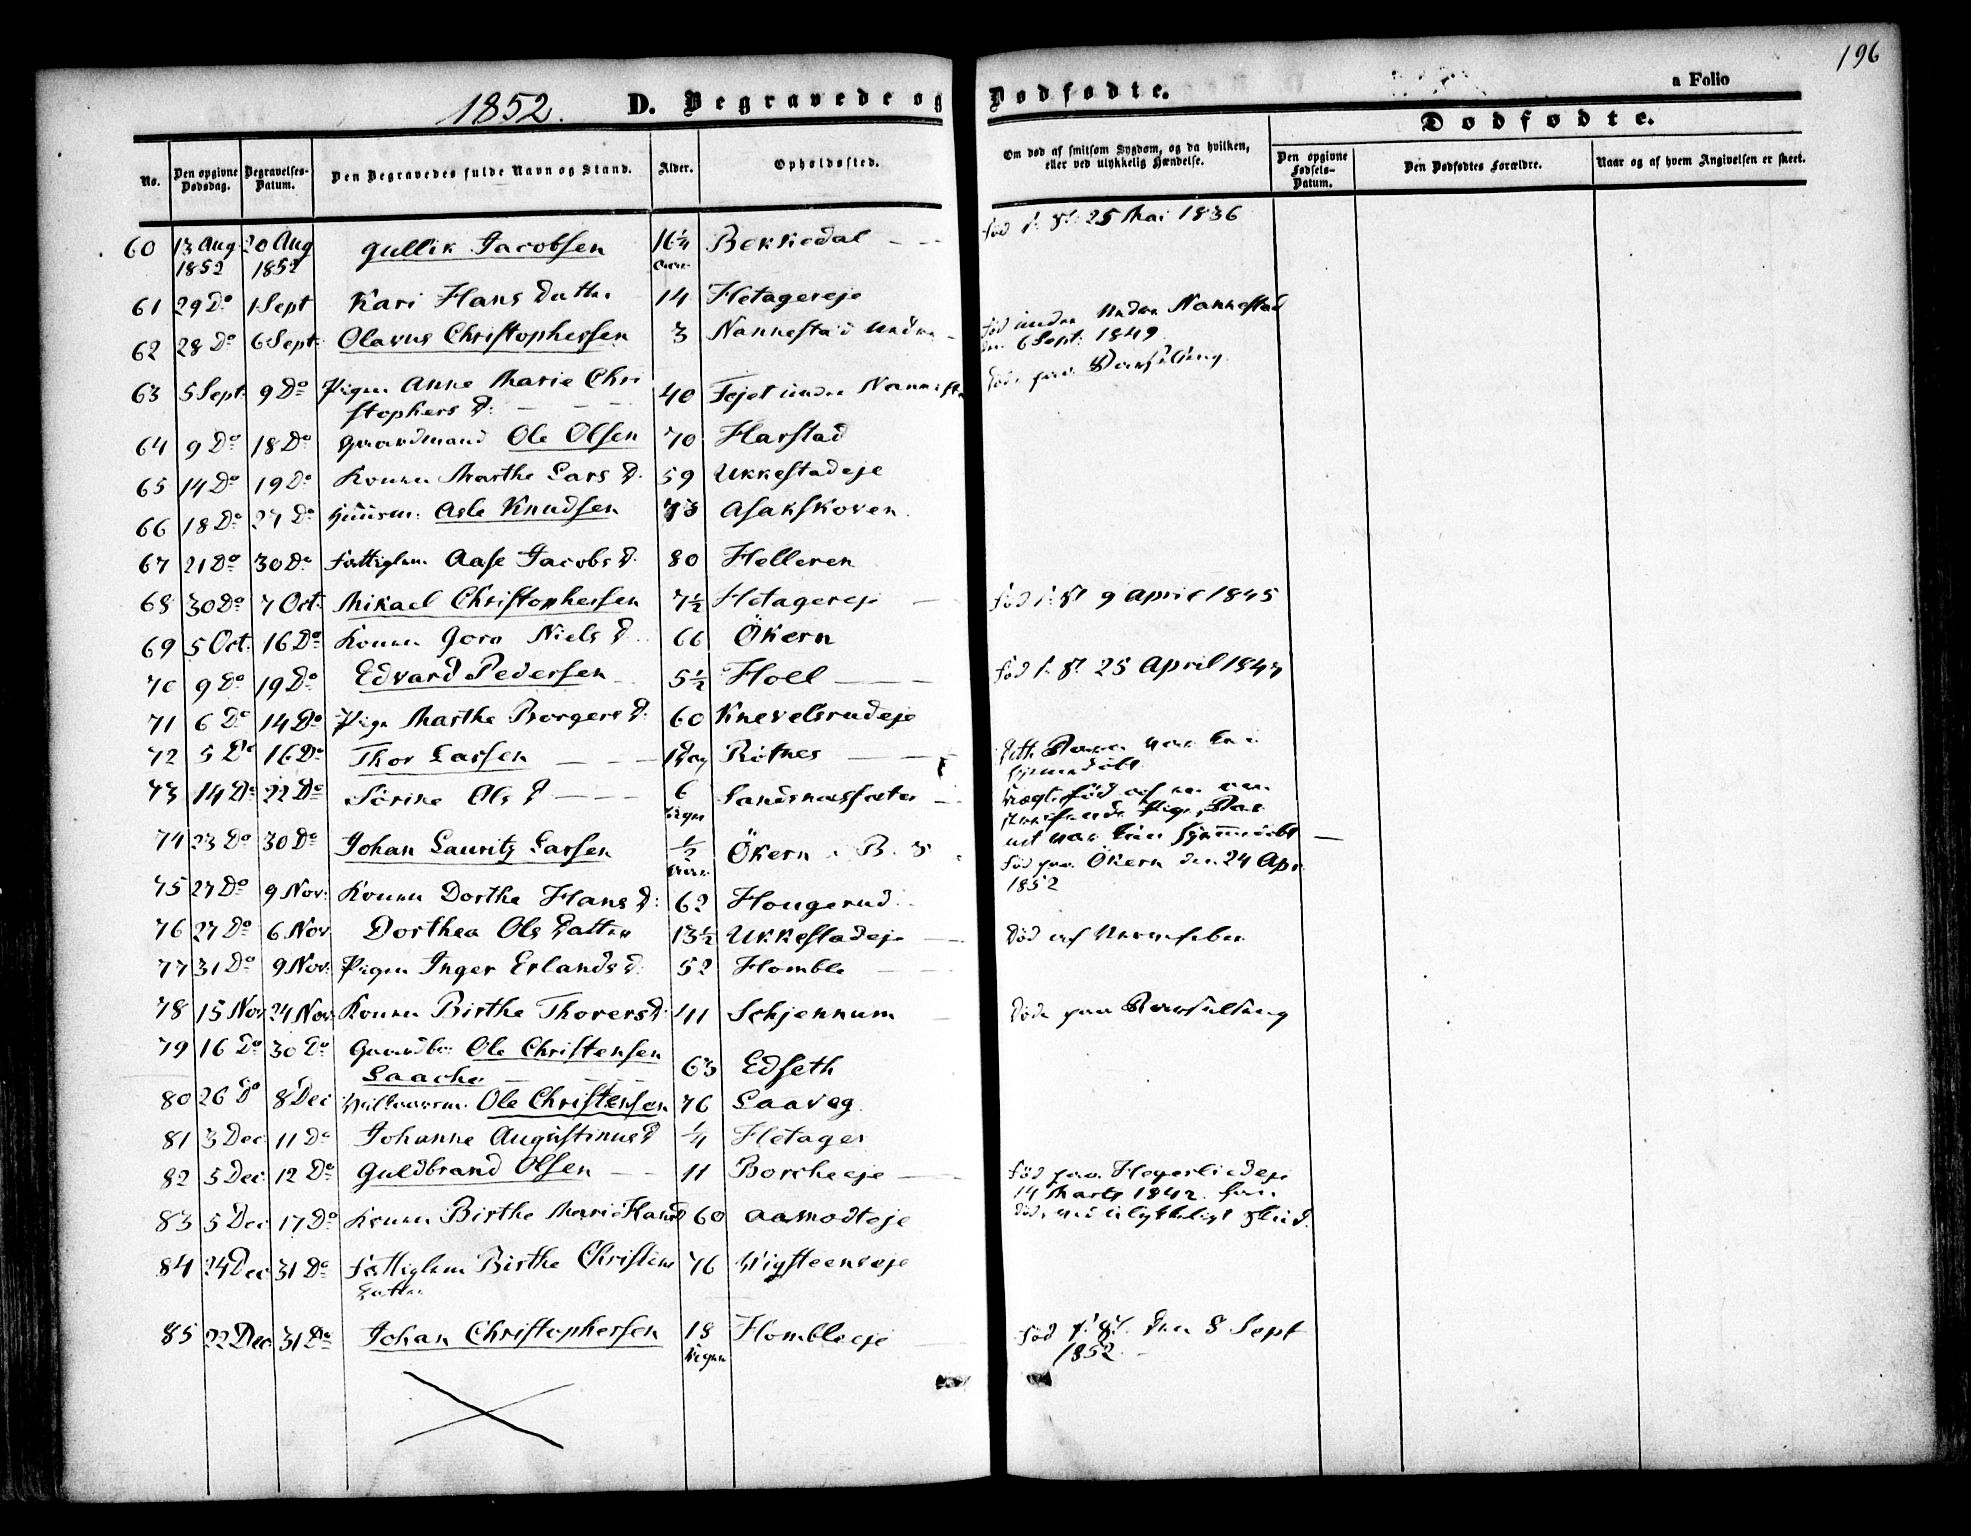 196
1852. D. Begravede og Dødfødte. a Folio
Dødfødte.
No. Den opgivne Dødsdag. Begravelses-Datum. Den Begravedes fulde Navn og Stand. Alder. Opholdssted. Om død af smitsom Sygdom, og da hvilken, eller ved ulykkelig Hændelse. Den opgivne Fødsels-Datum. Den Dødfødtes Forældre. Naar og af hvem Angivelsen er skeet.
60 13 Aug 1852 20 Aug 1852 Gullik Jacobsen 16¼ Bekkedal – – født 25 Mai 1836
61 29 Do 1 Sept Kari Hans Datter 14 Fletagereje
62 28 Do 6 Sept: Olavus Christophersen 3 Nannestad under – født under Nannestad
den 6 Sept: 1849.
63 5 Sept: 9 Do Pigen Anne Marie Chri
stophers D: – – – 40 Fejet under Nannesta døde paa Barselseng
64 9 Do 18 Do Gaardmand Ole Olsen 70 Harstad
65 14 Do 19 Do Konen Marthe Lars D. 59 Ukkestadeje
66 18 Do 27 Do Huusm: Asle Knudsen 73 Asakskoven
67 21 Do 30 Do Fattiglem Aase Jacobs D. 80 Helleren
68 30 Do 7 Oct: Mikael Christophersen 7½ Fletagereje – 9 April 1845
69 5 Oct: 16 Do Konen Goro Niels D. 66 Økern
70 9 Do 19 Do Edvard Pedersen – 5½ Holl – – – 25 April 1847
71 6 Do 14 Do Pige Marthe Borgers D: 60 Knevelsrudeje
72 5 Do 16 Do Thor Larsen – – – 1 Dag Rotnes – – – dette Barn var kun
hjemmedøbt
73 14 Do 22 Do Sørine Ols D – – – 6 Uger
Pige, Bar
net var kun hjemmedøbt –
74 23 Do 30 Do Johan Lauritz Larsen ½ Økern født paa Økern den 24 Apr.
1852
75 27 Do 9 Nov: Konen Dorthe Hans D: 62 Hougerud
76 27 Do 6 Nov Dorthea Ols Datter 13½ Ukkestadeje – Død af Nervefeber
77 31 Do 9 Nov: Pigen Inger Erlands D. 52 Homble –
78 15 Nov 24 Nov Konen Birthe Thorers D: 41 Schjennum – Døde paa Barselseng
79 16 Do 30 Do Gaardbr: Ole Christensen
Laache – – – 63 Edseth
80 26 D 8 Dec Ole Christensen 76 Laaveg
81 3 Dec 11 Do Johanne Augustinus D ¼ Fletager
82 5 Dec: 12 Do Guldbrand Olsen – – 11 Borcheeje – født paa
14 Marts 1842.
død ved ulykkeligt Skud.
83 5 Dec 17 Do Konen Birthe Marie Hans D 60 Aamodteje
84 24 Dec 31 Do Fattiglem Birthe Christens
Datter 76 Wigsteenseje
85 22 Dec 31 Do Johan Christophersen 18 Uger Hombleeje – født den 8 Sept
1852. –